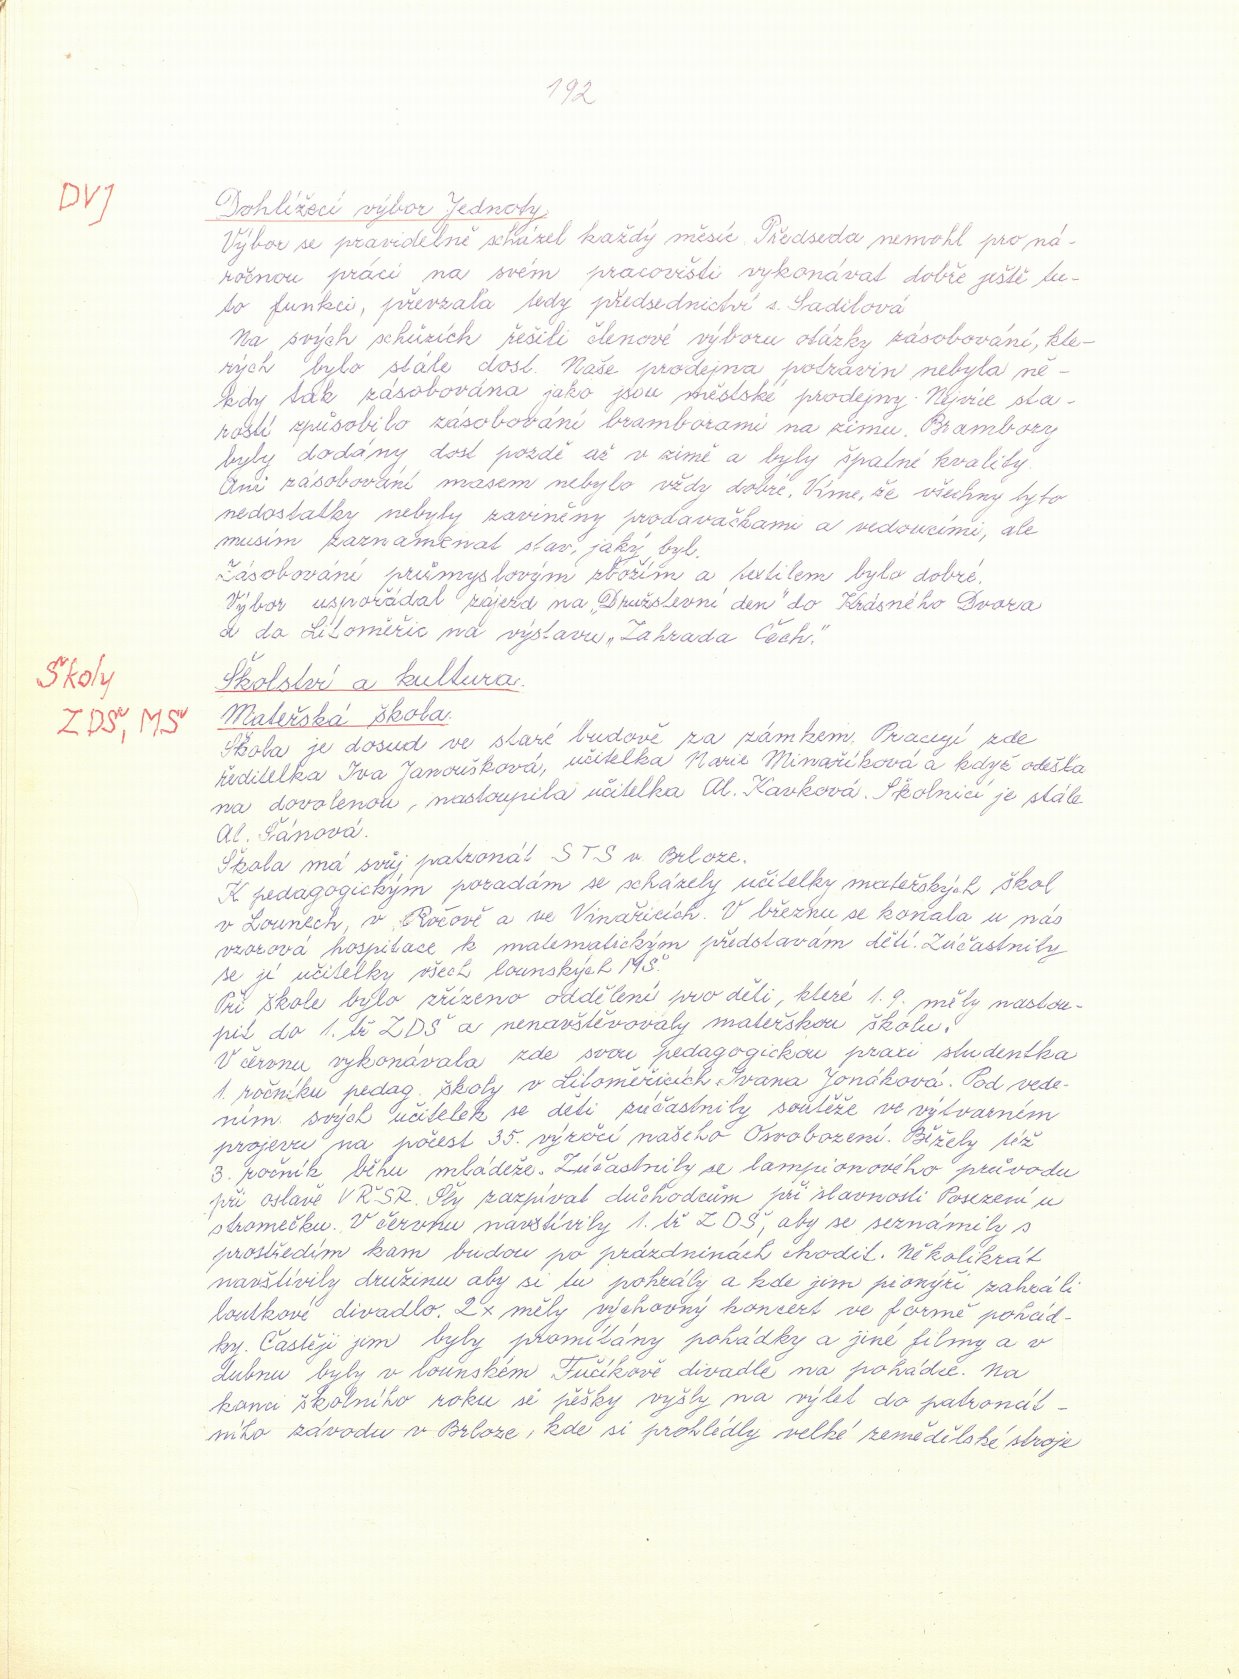 192
DVJ
Dohlížecí výbor Jednoty
Výbor se pravidelně scházel každý měsíc. Předseda nemohl pro ná-
ročnou práci na svém pracovišti vykonávat dobře ještě tu-
to funkci, převzala tedy předsednictví s. Sadilová
Na svých schůzích řešili členové výboru otázky zásobování, kte-
rých bylo stále dost. Naše prodejna potravin nebyla ně-
kdy tak zásobována jako jsou městské prodejny. Nejvíc sta-
rostí způsobilo zásobování bramborami na zimu. Brambory
byly dodány dost pozdě až v zimě a byly špatné kvality.
Ani zásobování masem nebylo vždy dobré. Víme, že všechny tyto
nedostatky nebyly zaviněny prodavačkami a vedoucími, ale
musím zaznamenat stav, jaký byl.
Zásobování průmyslovým zbožím a textilem bylo dobré.
Výbor uspořádal zájezd na „Družstevní den" do Krásného Dvora
a do Litoměřic na výstavu „Zahrada Čech."
Školy
Školství a kultura.
ZDŠ, MŠ
Mateřská škola.
Škola je dosud ve staré budově za zámkem. Pracují zde
ředitelka Iva Janoušková, učitelka Marie Minaříková a když odešla
na dovolenou, nastoupila učitelka Al. Kavková. Školnicí je stále
Al. Šánová.
Škola má svůj patronát STS v Brloze.
K pedagogickým poradám se scházely učitelky mateřských škol
v Lounech, v Ročově a ve Vinařicích. V březnu se konala u nás
vzorová hospitace k matematickým představám dětí. Zúčastnily
se jí učitelky všech lounských MŠ.
Při škole bylo zřízeno oddělení pro děti, které 1.9. měly nastou-
pit do 1. tř ZDŠ a nenavštěvovaly mateřskou školu.
V červnu vykonávala zde svou pedagogickou praxi studentka
1. ročníku pedag. školy v Litoměřicích Ivana Jonáková. Pod vede-
ním svých učitelek se děti zúčastnily soutěže ve výtvarném
projevu na počest 35. výročí našeho Osvobození. Běžely též
3. ročník běhu mládeže. Zúčastnily se lampionového průvodu
při oslavě VŘSR. Šly zazpívat důchodcům při slavnosti Posezení u
stromečku. V červnu navštívily 1. tř ZDŠ, aby se seznámily s
prostředím kam budou po prázdninách chodit. Několikrát
navštívily družinu aby si tu pohrály a kde jim pionýři zahráli
loutkové divadlo. 2x měly výchovný koncert ve formě pohád-
ky. Častěji jim byly promítány pohádky a jiné filmy a v
dubnu byly v lounském Fučíkově divadle na pohádce. Na
konci školního roku se pěšky vyšly na výlet do patronát-
ního závodu v Brloze, kde si prohlédly velké zemědělské stroje